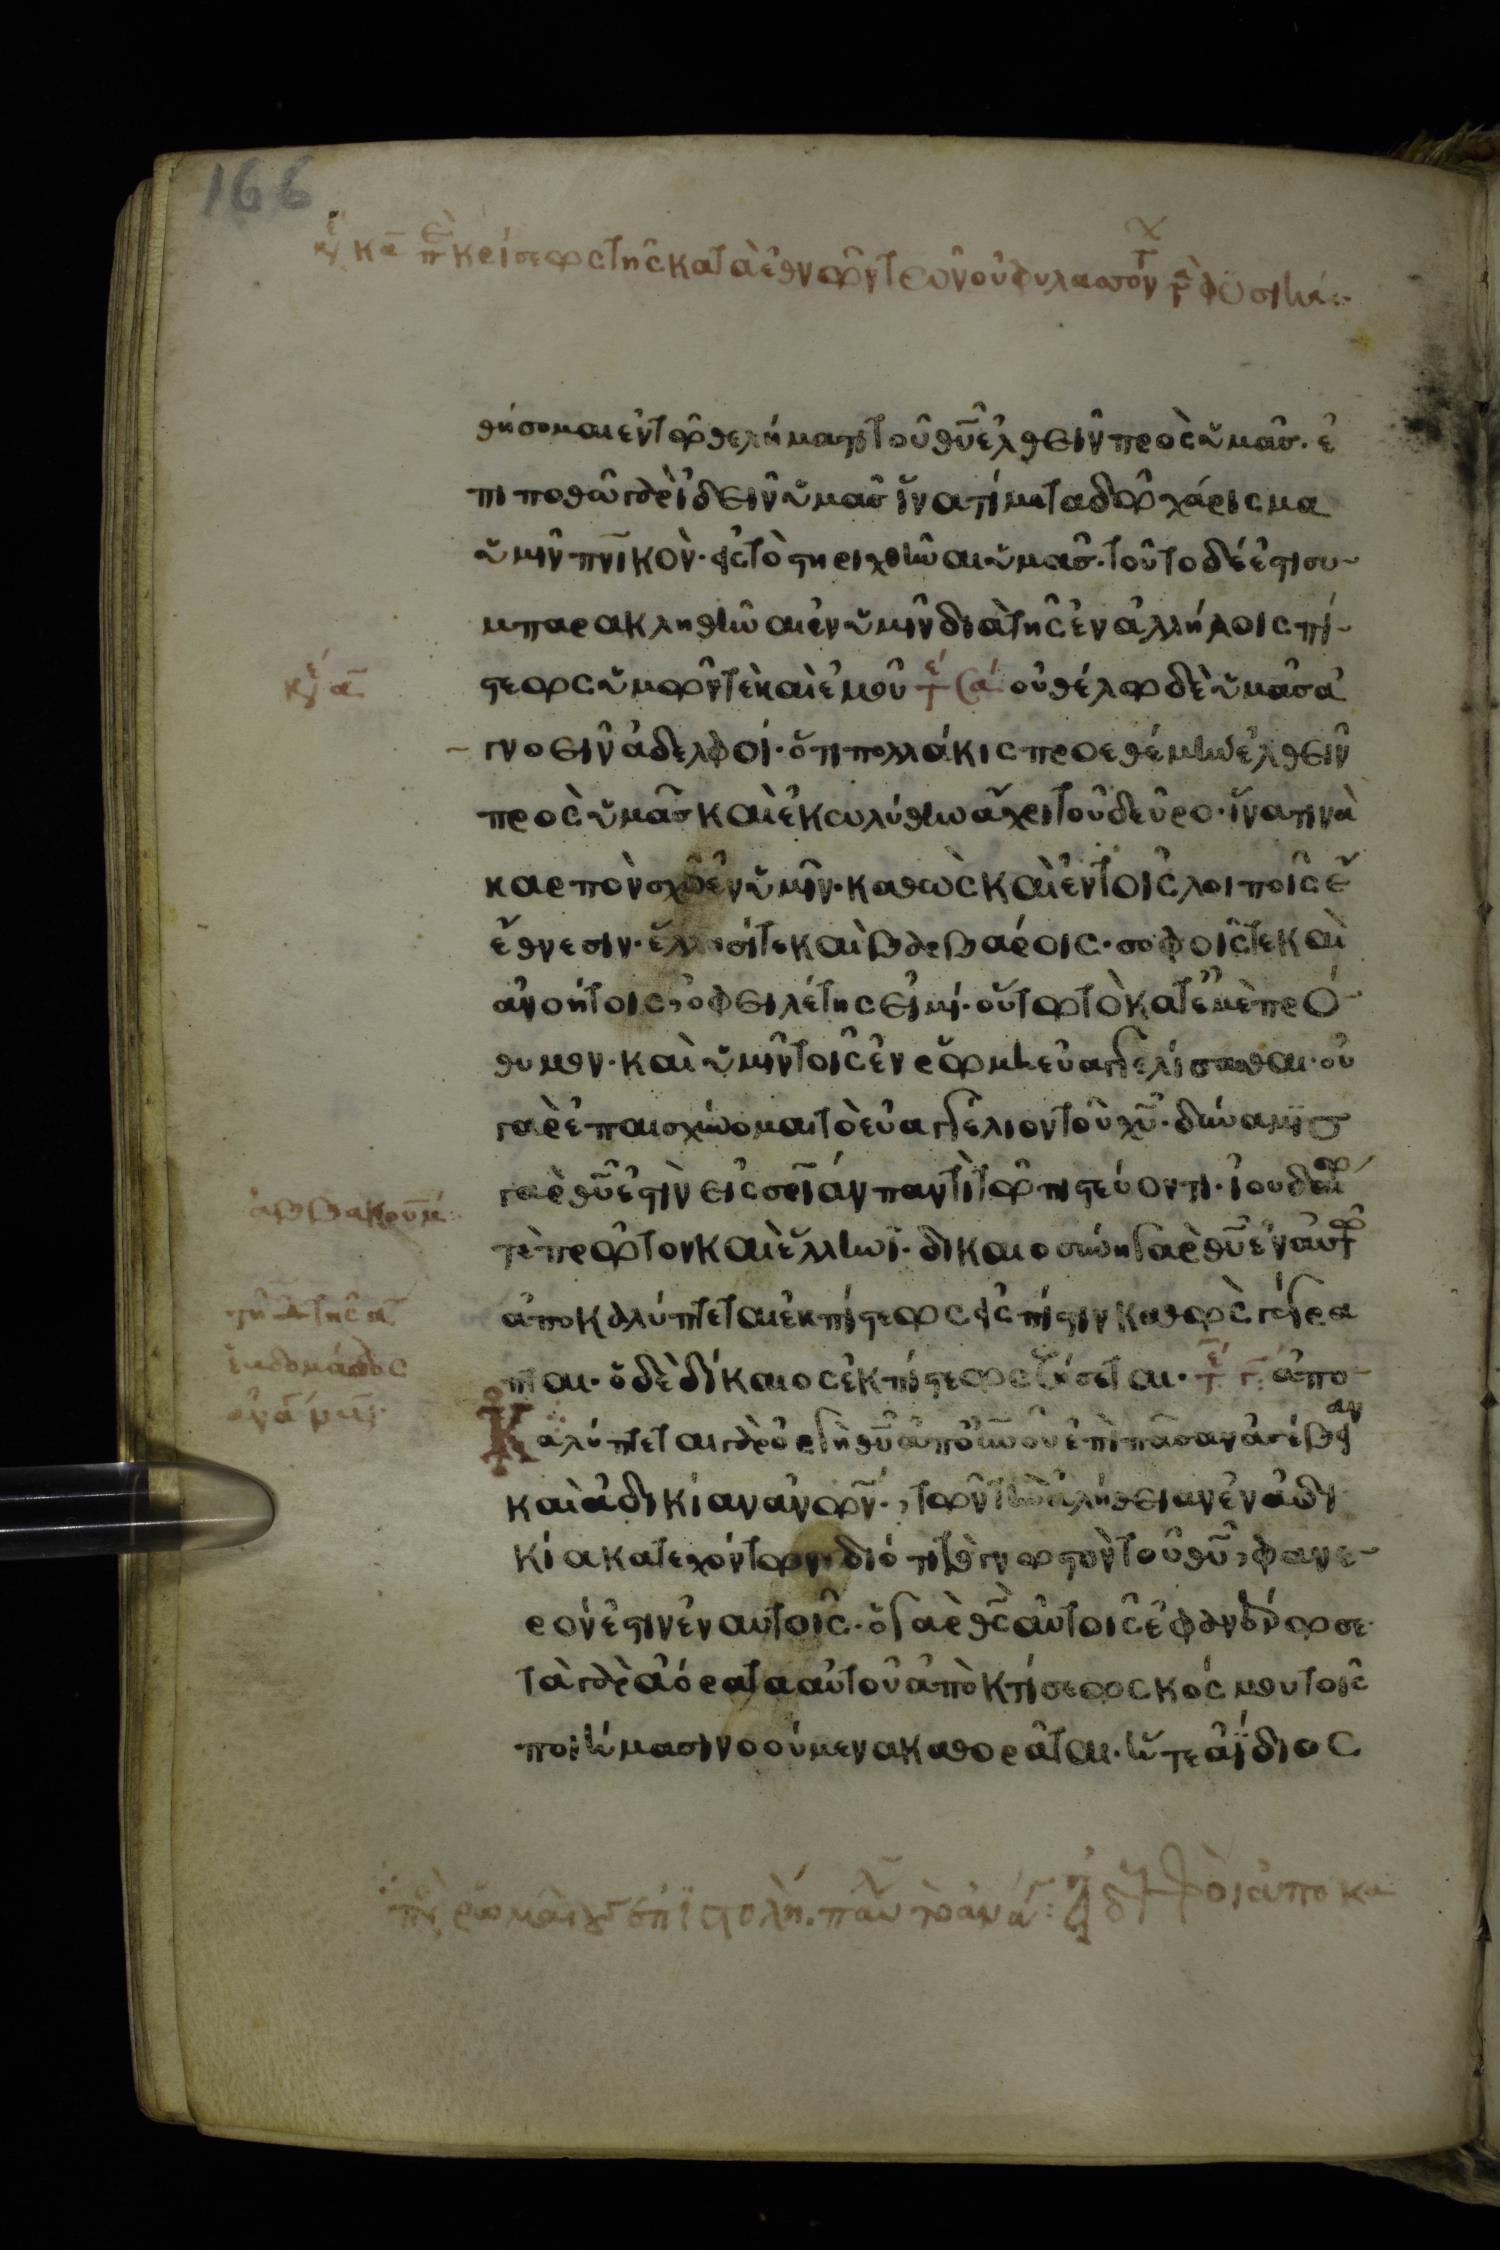 166
κεισεως της κατα εθνων των ου φυλασσον
θήσομαι ἐν τῶ θελήματι τοῦ θῦ ἐλθεῖν πρὸς ὑμᾶσ· ἐ
πιποθῶ γὰρ ἰδεῖν ὑμᾶσ ἵνα τί μεταδῶ χάρισμα
ὑμῖν πνικὸν· εἰς τὸ στηριχθῆναι ὑμᾶσ· τοῦτο δέ ἐστι συ
μπαρακληθῆναι ἐν ὑμῖν διὰ τῆς ἐν ἀλλήλοις πί
στεως ὑμῶν τὲ καὶ ἐμοῦ οὐ θέλω δὲ ὑμᾶσ ἀ
γνοεῖν ἀδελφοί· ὅτι πολλάκις προεθέμην ἐλθεῖν
πρὸς ὑμᾶσ καὶ ἐκωλύθην ἄχρι τοῦ δεῦρο· ἵνα τινὰ
καρπὸν σχῶ ἐν ὑμῖν· καθὼς καὶ ἐν τοῖς λοιποῖς ἔ
ἔθνεσιν· ἕλλησί τε καὶ βαρβάροις· σοφοῖς τε καὶ
ἀνοήτοις, ὀφειλέτης εἰμί· οὕτω τὸ κατ ἐμὲ πρό
θυμον· καὶ ὑμῖν τοῖς ἐν ρώμη εὐαγγελίσασθαι· οὐ
γὰρ ἐπαισχύνομαι τὸ εὐαγγέλιον τοῦ χῦ· δύναμις
γὰρ θῦ ἐστὶν εἰς σρίαν παντὶ τῶ πιστεύοντι· ἰουδαίω
τὲ πρῶτον καὶ ἕλληνι· δικαιοσύνη γὰρ θῦ ἐν αὐτῶ
ἀποκαλύπτεται ἐκ πίστεως εἰς πίστιν καθὼς γέγρα
πται· ὁ δὲ δίκαιος ἐκ πίστεως ζήσεται· ἀπο
Καλύπτεται γὰρ ὀργὴ θῦ ἀπ οὐνοῦ ἐπὶ πᾶσαν ἀσέβειαν
καὶ ἀδικίαν ἀνων·, τῶν τὴν ἀλήθειαν ἐν ἀδι
κία κατεχόντων διότι τὸ γνωστὸν τοῦ θῦ, φανε
ρόν ἐστιν ἐν αὐτοῖς· ὁ γὰρ θς αὐτοῖς ἐφανέρωσε·
τὰ γὰρ ἀόρατα αὐτοῦ ἀπὸ κτίσεως κόσμου τοῖς
ποιήμασι νοούμενα καθορᾶται· ἥ τε ἀΐδιος